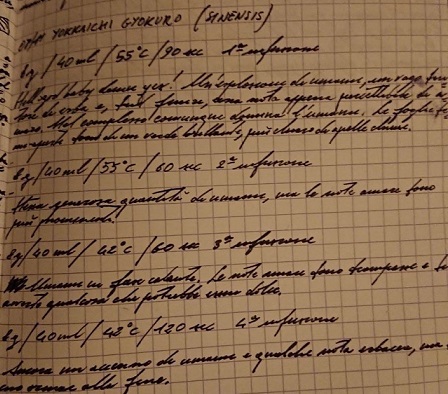 YOKKAICHI GYOKURO (SINENSIS)
8g / 40 ml / 55°C / 90 sec 1ª infusione
Hell yes! Un'esplosione di umami, un vago
di erba e, sul finire, una nota appena percettibile di
Nel complesso comunque domina l'umami. Le foglie
sono di un verde brillante, più chiaro di quelle
8g / 40 ml / 55°C / 60 sec 2ª infusione
generosa quantità di umami, ma le note amare sono
più pronunciate.
8g / 40 ml / 42°C / 60 sec 3ª infusione
Umami in fase calante. Le note amare sono scomparse e
qualcosa che potrebbe essere dolce.
8g / 40 ml / 42°C / 120 sec 4ª infusione
Ancora un accenno di umami e qualche nota erbacea, ma
alla fine.